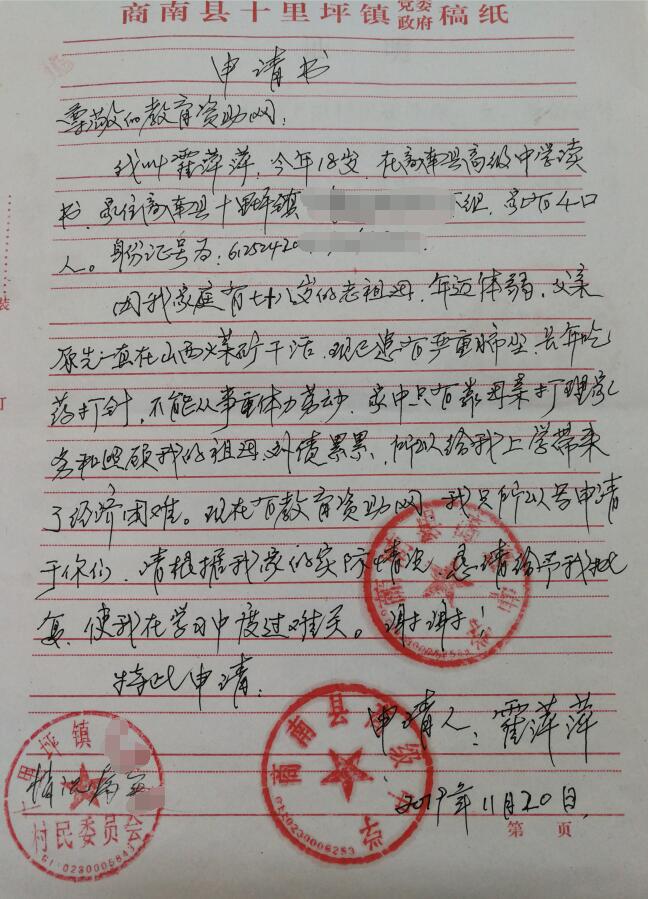 商南县十里坪镇党委政府稿纸
申请书
尊敬的教育资助网:
我叫霍萍萍,今年18岁,在商南县高级中学读
书,家住商南县十里坪镇 组,家有4口
人。身份证号为:61252420
因我家庭有七十八岁的老祖母,年迈体弱,父亲
原先一直在山西义煤矿干活,现已患有严重肺坐,长年吃
药打针,不能从事重体力劳动,家中只有靠母亲打理家
务和照顾我的祖母,外债累累,所以给我上学带来
了经济困难。现在有教育资助网,我只所以另申请
于你们,请根据我家的实际情况,恳请给予我批
复,使我在学习中度过难关。谢谢!
特此申请。
申请人:霍萍萍
2019年11月20日
情况属实
十里坪镇
村民委员会
商南县 级中学
6110230006283
第 页